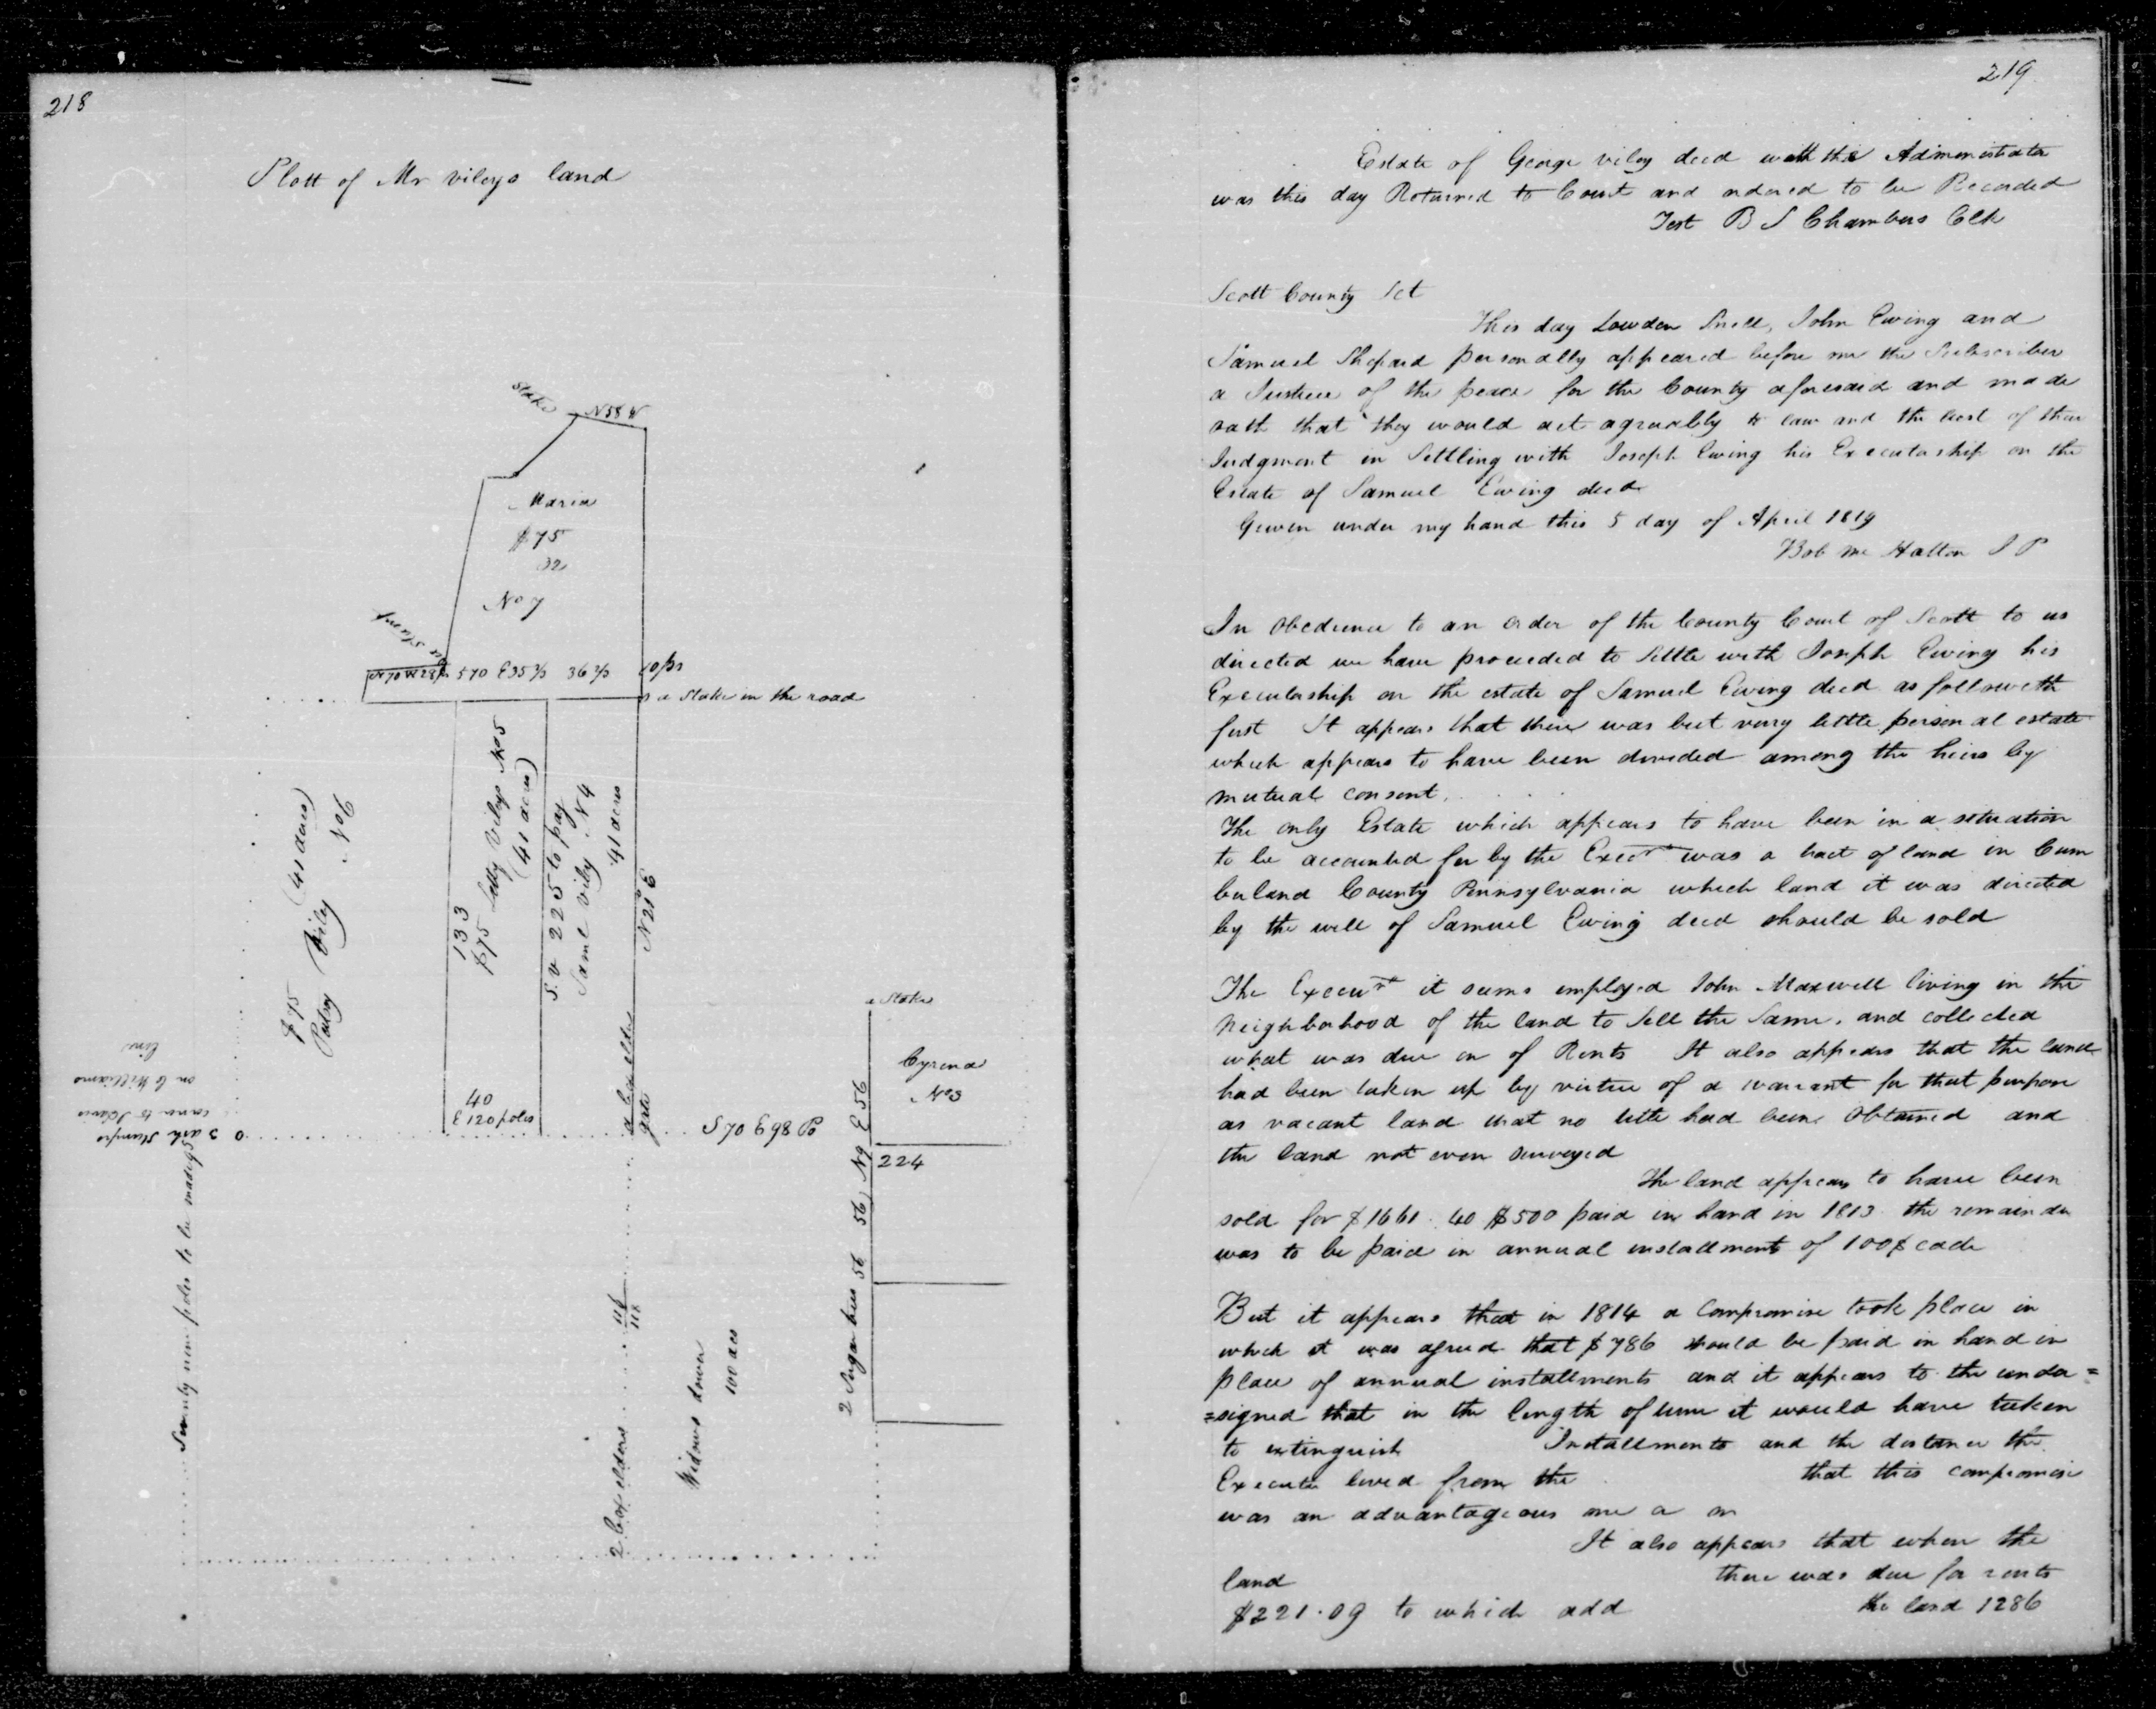 218
Plott of Mr vileys land
Stake N58W
Maria
$75
32
No 7
N70W28p S70 E35⅓ 36⅔ 10ps
a Stake in the road
$75 (41 acres)
Patsy Viley No6
133
$75 Sally Vileys No5
(41 acres)
S. v 225 to pay
Saml Viley N4
41 acres
N21°E
40
E 120 poles
a box elder
gate
S70 E98 Po
a Stake
Cyrena
No3
224
2 Sugar trees 56 56 N9 E 56
3 ash Stumps
corner to
on C Williams
line
Seventy nine poles to be made
2 Box elders
118
Widows dower
100 acs
219
Estate of George viley decd with the Administrator
was this day Returned to Court and ordered to be Recorded
Test B S Chambers Clk
Scott County Sct
This day Lowden Snell, John Ewing and
Samuel Shepard personally appeared before me the Subscriber
a Justice of the peace for the County aforesaid and made
oath that they would act agreeably to law and the best of their
Judgment in Settling with Joseph Ewing his Executorship on the
Estate of Samuel Ewing decd
Given under my hand this 5 day of April 1819
Bob Mc Hatton J P
In obedience to an order of the County Court of Scott to us
directed we have proceeded to Settle with Joseph Ewing his
Executorship on the estate of Samuel Ewing decd as followeth
first It appears that there was but very little personal estate
which appears to have been divided among the heirs by
mutual consent.
The only Estate which appears to have been in a situation
to be accounted for by the Execr was a tract of land in Cum
berland County Pennsylvania which land it was directed
by the will of Samuel Ewing decd should be sold
The Execur it seems employed John Maxwell living in the
Neighborhood of the land to Sell the Same. and collected
what was due on of Rents It also appears that the land
had been taken up by virtue of a warrant for that purpose
as vacant land that no title had been Obtained and
the land not even surveyed
The land appears to have been
sold for $1661.40 $500 paid in hand in 1813 the remainder
was to be paid in annual installments of 100$ each
But it appears that in 1814 a Compromise took place in
which it was agreed that $786 should be paid in hand in
place of annual installments and it appears to the under=
=signed that in the length of time it would have taken
to extinguish Installments and the distance the
Executor lived from the that this compromise
was an advantageous one a m
It also appears that when the
land there was due for rents
$221.09 to which add the land 1286